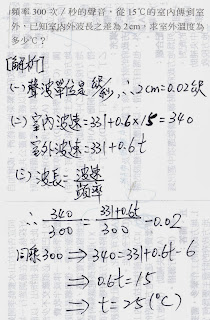 頻率300次/秒的聲音,從15℃的室內傳到室
外,已知室內外波長之差為2cm,求室外溫度為
多少℃?
[解析]
(一)聲波單位是 ∴2cm=0.02公尺
(二)室內波速=331+0.6×15=340
室外波速=331+0.6t
(三)波長=波速/頻率
∴ 340/300 = 331+0.6t/300 -0.02
同乘300 ⇒ 340=331+0.6t-6
⇒ 0.6t=15
⇒ t=25(℃)